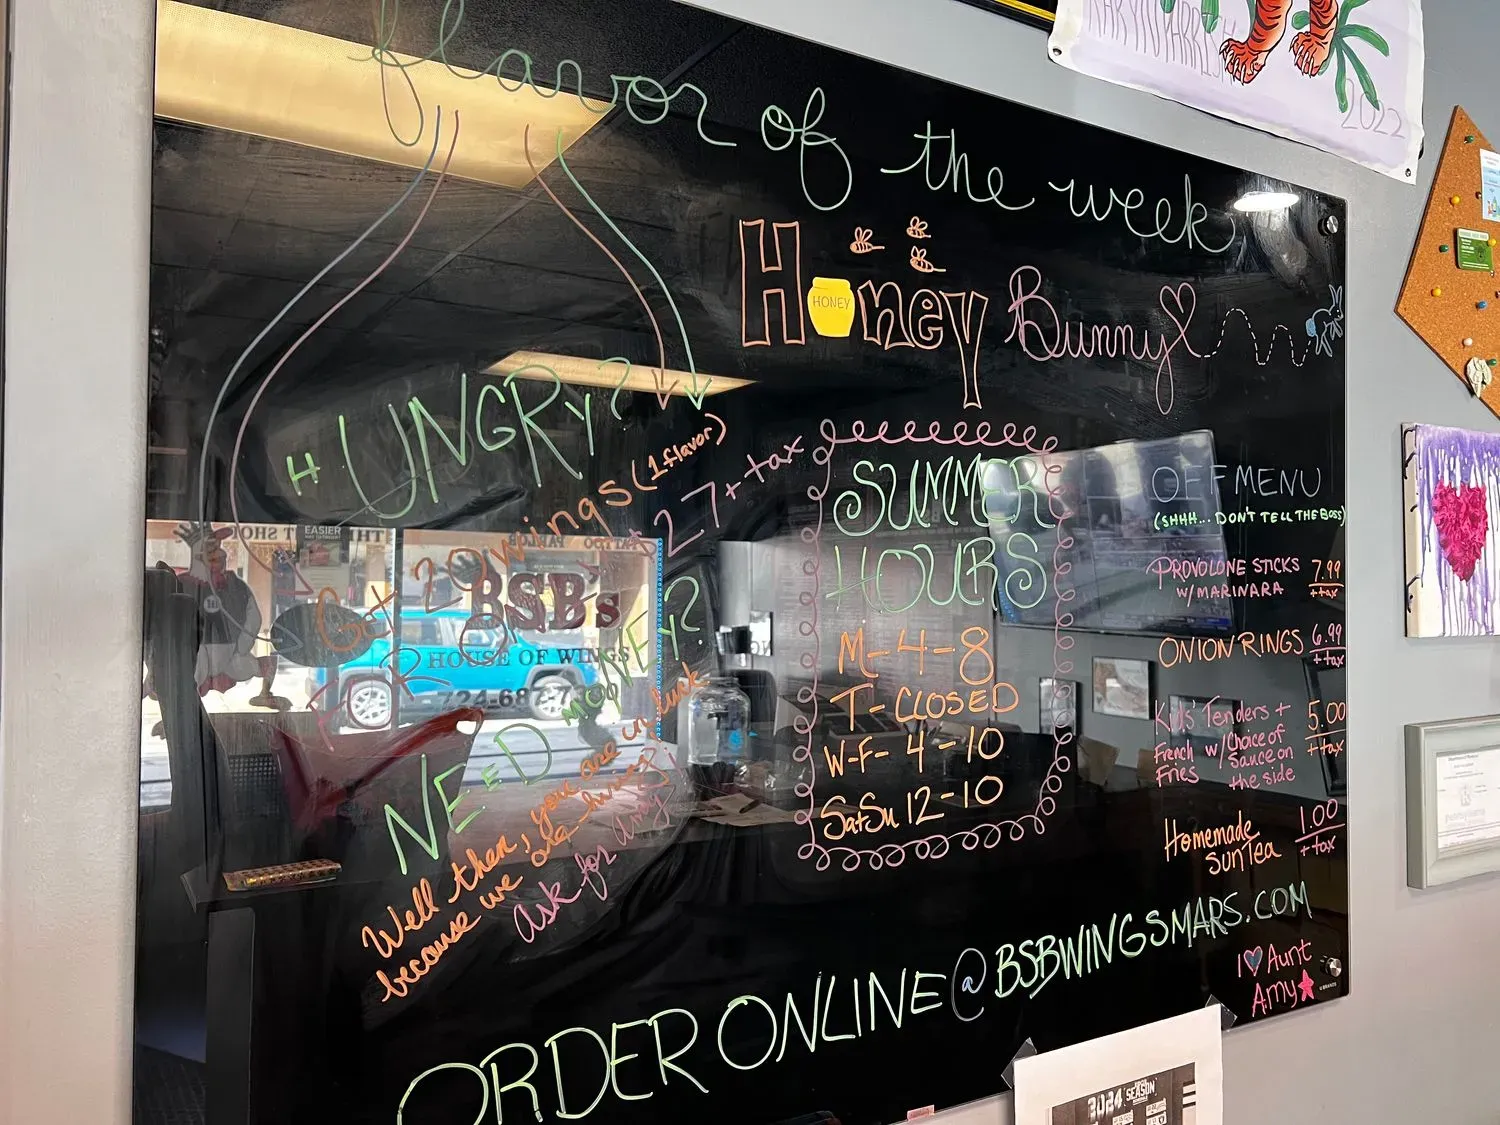 flavor of the week
Honey Bunny
HONEY
HUNGRY?
Get 20 wings (1 flavor)
FOR $27 + tax
NEED MONEY?
Well then, your are in luck
because we are hiring!
ask for Amy
SUMMER
HOURS
M - 4 - 8
T - CLOSED
W-F - 4 - 10
Sat Su 12 - 10
OFF MENU
(SHHH... DON'T TELL THE BOSS)
PROVOLONE STICKS 7.99
W/ MARINARA + tax
ONION RINGS 6.99
+ tax
Kids' Tenders + 5.00
French w/ Choice of + tax
Fries Sauce on
the side
Homemade 1.00
Sun Tea + tax
ORDER ONLINE @ BSBWINGSMARS.COM
I ♡ Aunt
Amy
U BRANDS
BSB's
HOUSE OF WINGS
EASIER
2022
2024 SEASON